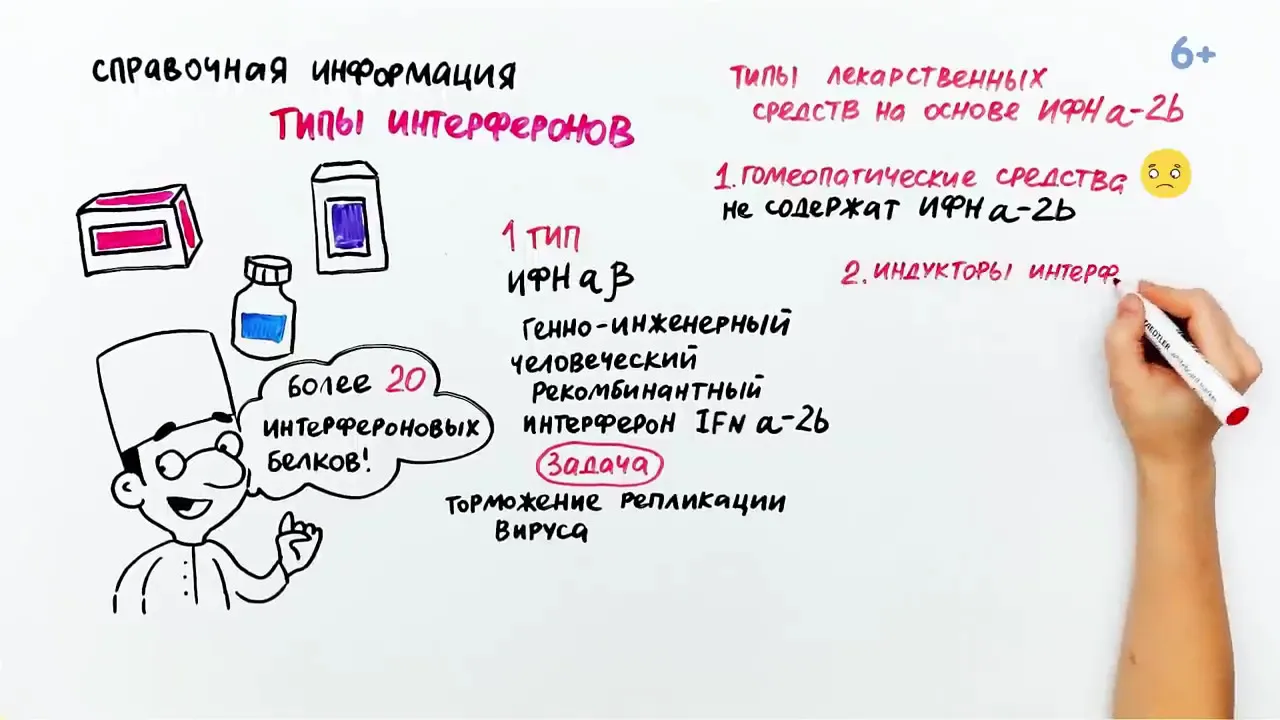 6+
СПРАВОЧНАЯ ИНФОРМАЦИЯ
ТИПЫ ИНТЕРФЕРОНОВ
более 20
интерфероновых
белков!
1 ТИП
ИФН α β
Генно-инженерный
человеческий
рекомбинантный
интерферон IFN α-2b
Задача
торможение репликации
вируса
ТИПЫ ЛЕКАРСТВЕННЫХ
СРЕДСТВ НА ОСНОВЕ ИФН α-2b
1. ГОМЕОПАТИЧЕСКИЕ СРЕДСТВА
НЕ СОДЕРЖАТ ИФН α-2b
2. ИНДУКТОРЫ ИНТЕРФ
STAEDTLER